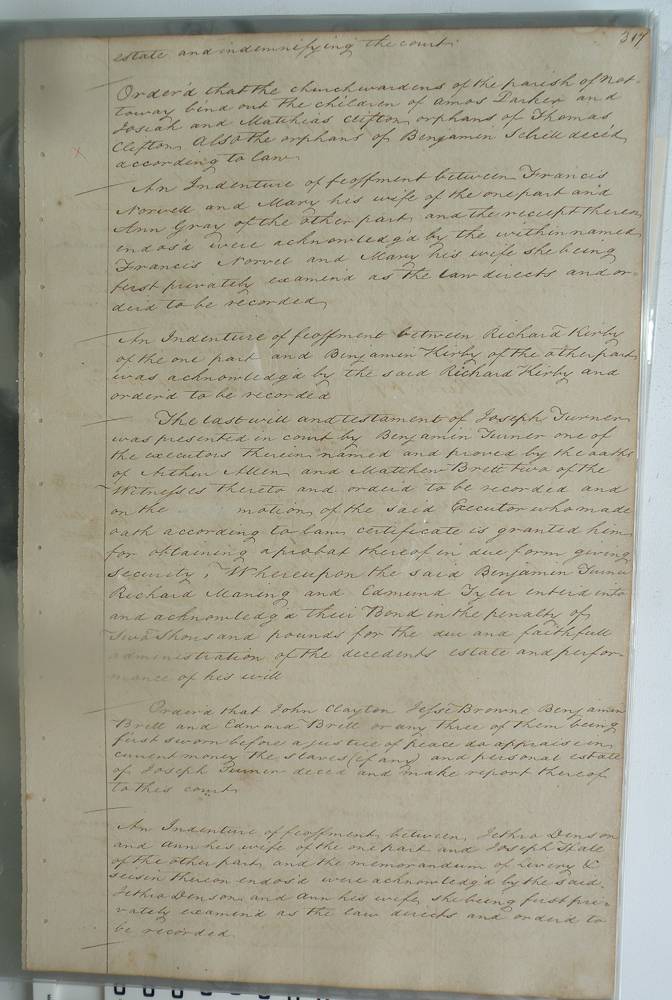 317
estate and indemnifying the court.
Order'd that the churchwardens of the parish of Not-
toway bind out the children of Amos Parker and
Josiah and Matthias Clifton orphans of Thomas
Clifton Also the orphans of Benjamin Schell deced
according to law
An Indenture of feoffment between Francis
Norvell and Mary his wife of the one part and
Ann Gray of the other part and the receipt thereon
endos'd were acknowledg'd by the within named
Francis Norvel and Mary his wife she being
first privately examin'd as the law directs and or-
der'd to be recorded
An Indenture of feoffment between Richard Kerby
of the one part and Benjamin Kirby of the other part
was acknowledg'd by the said Richard Kirby and
order'd to be recorded
The last will and testament of Joseph Turner
was presented in court by Benjamin Turner one of
the executors therein named and proved by the oaths
of Arthur Allen and Matthew Brett two of the
Witnesses thereto and order'd to be recorded and
on the motion of the said Executor who made
oath according to law certificate is granted him
for obtaining a probat thereof in due form giving
security, Whereupon the said Benjamin Turner
Richard Maning and Edmund Tyler enterd into
and acknowledg'd their Bond in the penalty of
Two Thousand pounds for the due and faithfull
administration of the decedents estate and perfor-
mance of his will
Order'd that John Clayton Jesse Browne Benjamin
Brett and Edward Brett or any three of them being
first sworn before a justice of peace do appraise in
current money the slaves (if any) and personal estate
of Joseph Turner deced and make report thereof
to this court
An Indenture of feoffment between Jethro Denson
and Ann his wife of the one part and Joseph
of the other part and the memorandum of Livery &
seisin thereon endos'd were acknowledg'd by the said
Jethro Denson and Ann his wife, she being first pri-
vately examind as the law directs and orderd to
be recorded